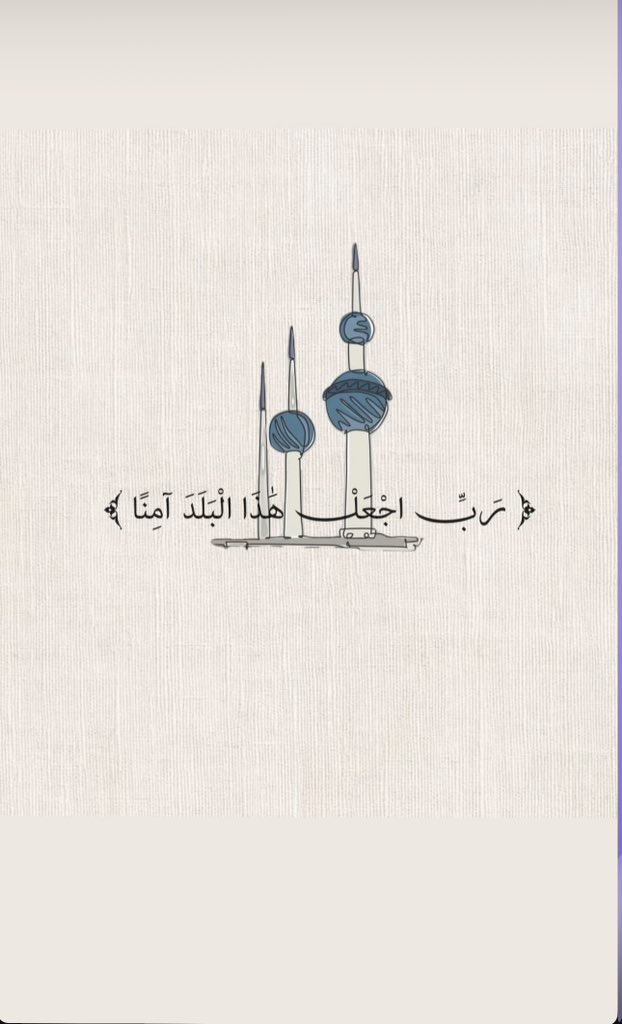 ﴿ رَبِّ اجْعَلْ هَٰذَا الْبَلَدَ آمِنًا ﴾